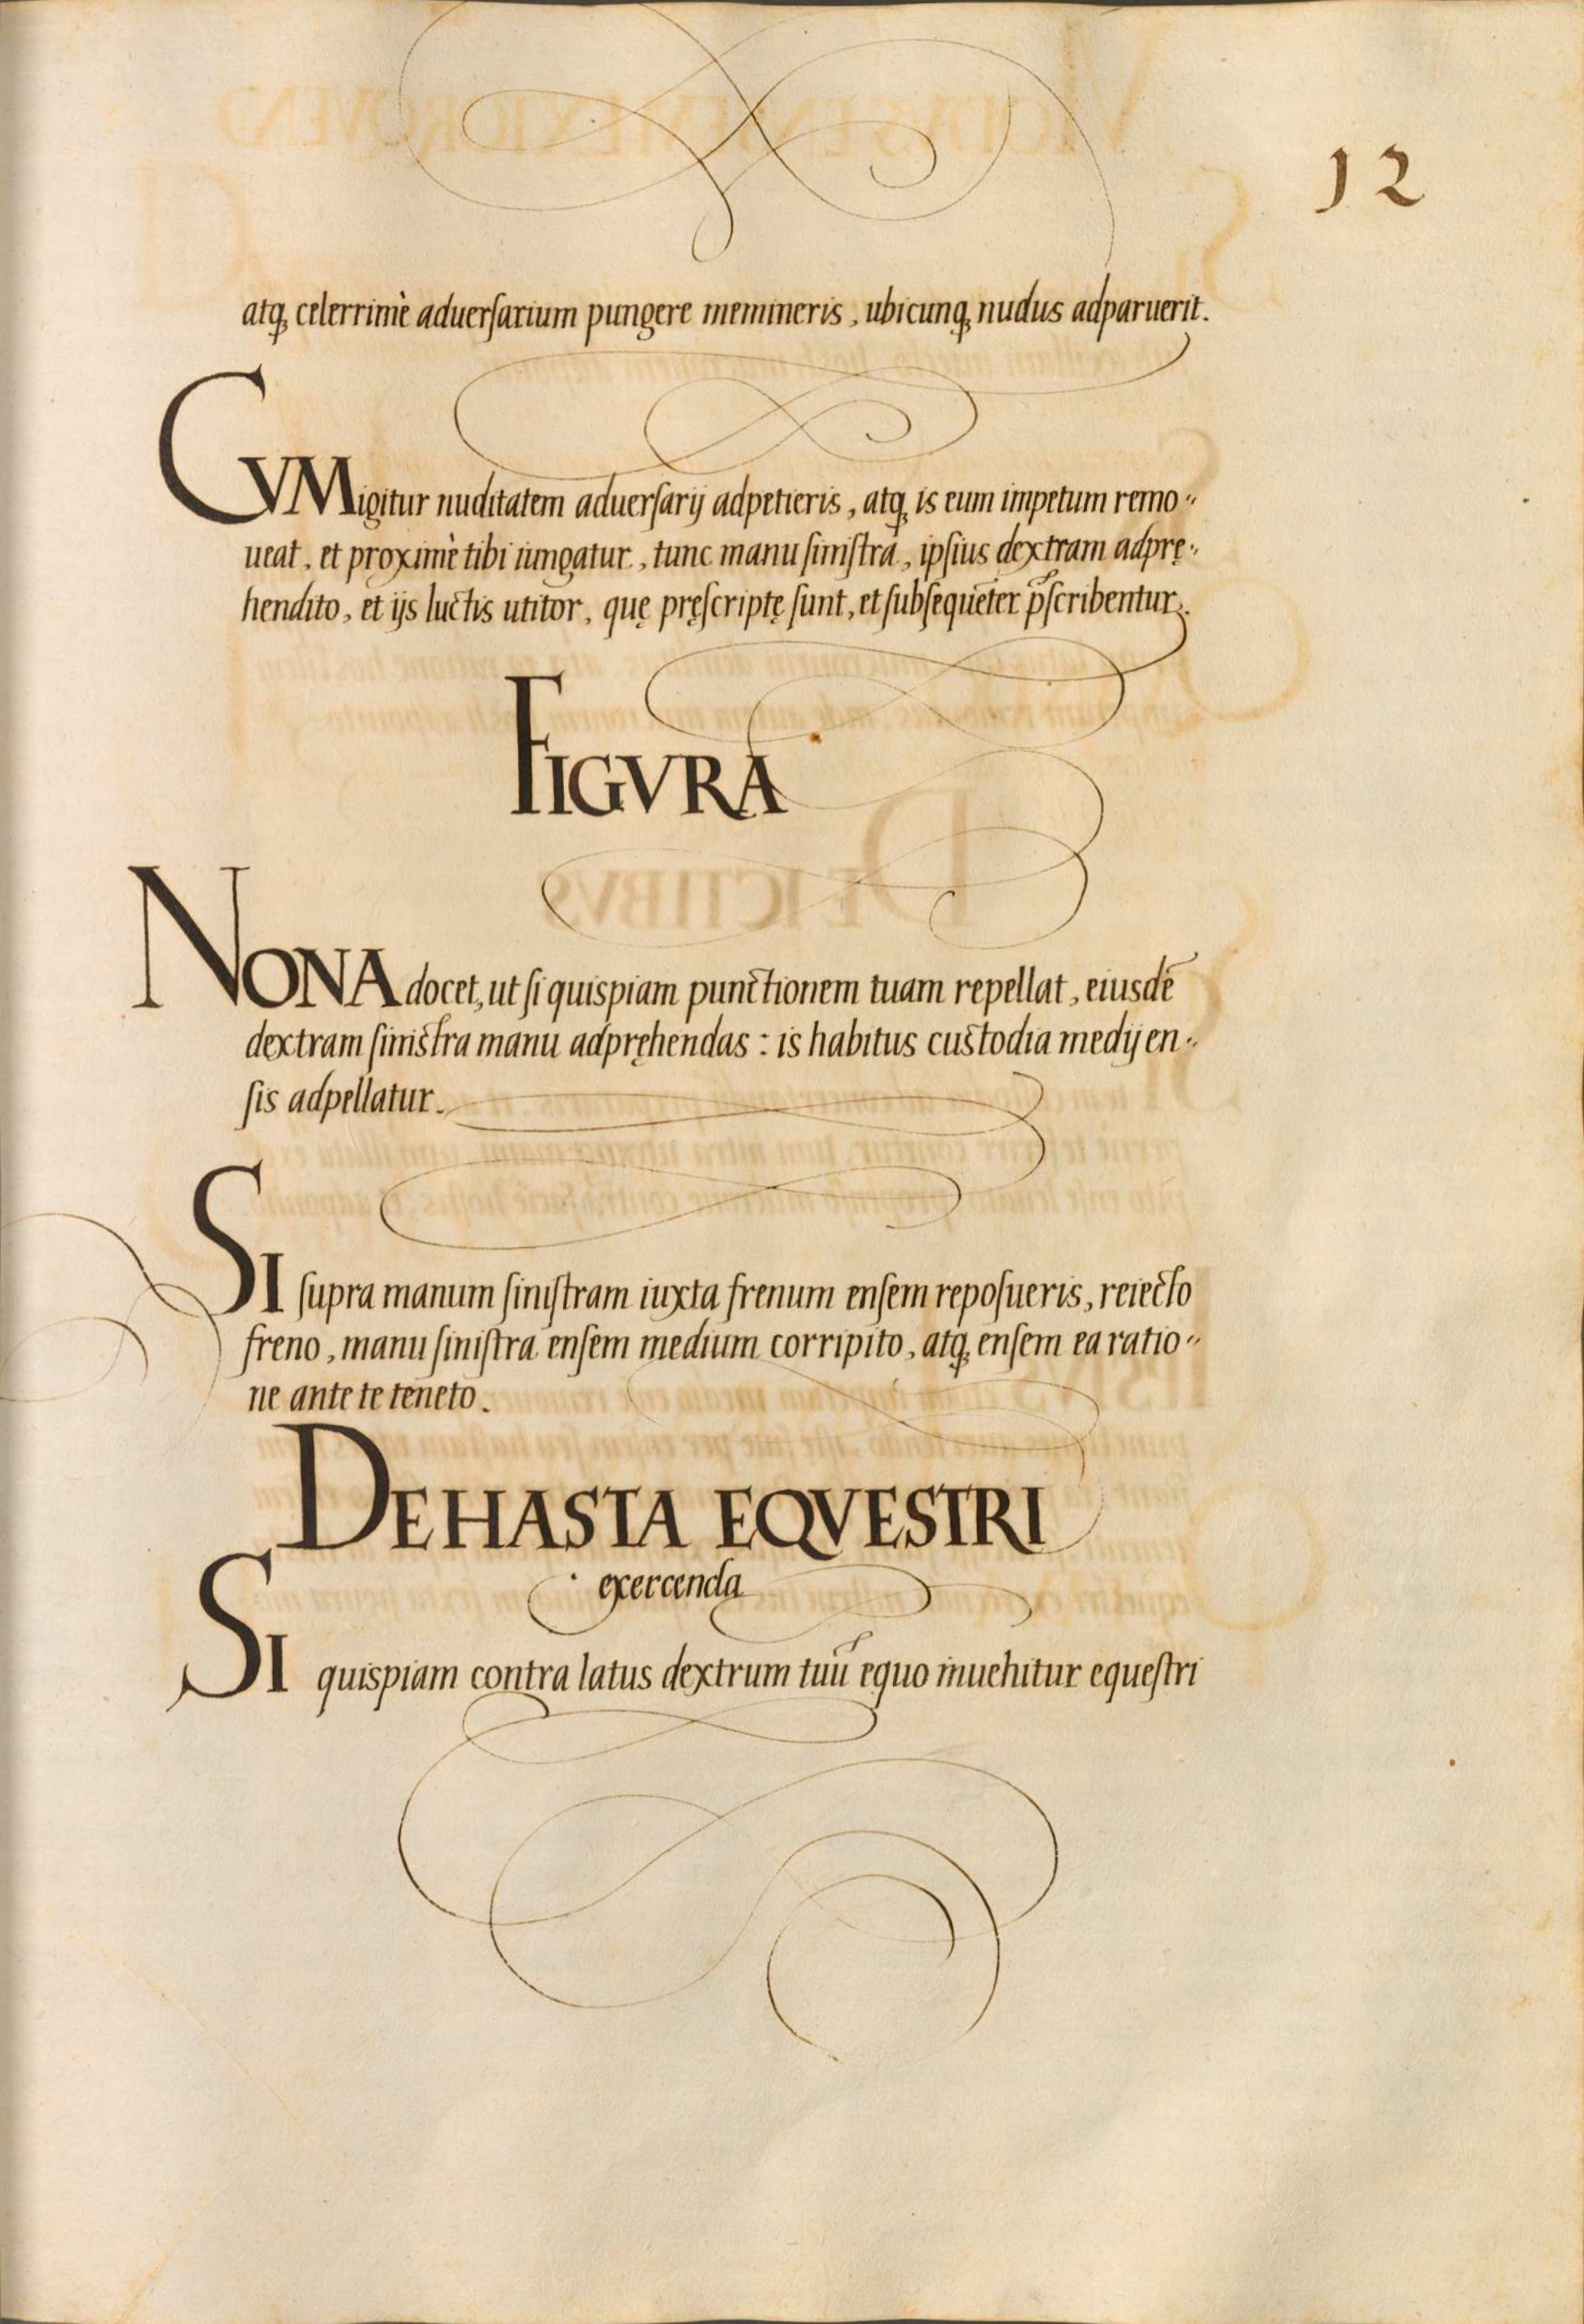 12
atq, celerrimè aduerſarium pungere memineris, ubicunq, nudus adparuerit.
CVM igitur nuditatem aduerſarij adpetieris, atq, is eum impetum remo-
ueat, et proximè tibi iungatur, tunc manu ſiniſtra, ipſius dextram adprę-
hendito, et ijs luctis utitor, quę pręſcriptę ſunt, et ſubſequēter p̄ſcribentur.
FIGVRA
NONA docet, ut ſi quispiam punctionem tuam repellat, eiusdē
dextram ſinistra manu adpręhendas : is habitus custodia medij en-
ſis adpellatur.
SI ſupra manum ſiniſtram iuxta frenum enſem repoſueris, reiecto
freno, manu ſiniſtra enſem medium corripito, atq, enſem ea ratio-
ne ante te teneto.
DE HASTA EQVESTRI
exercenda
SI quispiam contra latus dextrum tuū equo inuehitur equeſtri